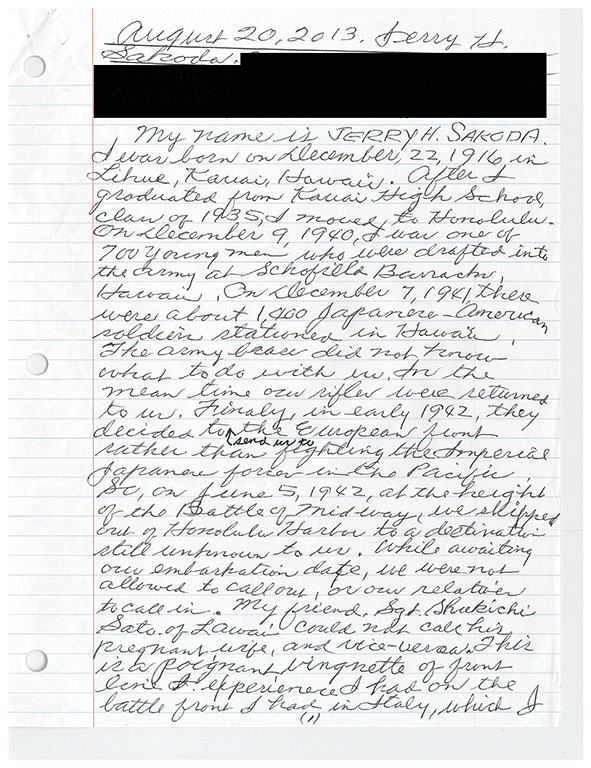 August 20, 2013. Jerry H.
Sakoda.
My name is JERRY H. SAKODA.
I was born on December, 22, 1916, in
Lihue, Kauai, Hawaii. After I
graduated from Kauai High School,
class of 1935, I moved to Honolulu.
On December 9, 1940, I was one of
700 young men who were drafted into
the army at Schofield Barracks,
Hawaii. On December 7, 1941, there
were about 1,400 Japanese-American
soldiers stationed in Hawaii.
The army brass did not know
what to do with us. In the
mean time our rifles were returned
to us. Finaly, in early 1942, they
decided to send us to the European front
rather than fighting the Imperial
Japanese forces in the Pacific.
So, on June 5, 1942, at the height
of the Battle of Midway, we shipped
out of Honolulu Harbor to a destination
still unknown to us. While awaiting
our embarkation date, we were not
allowed to call out, or our relatives
to call in. My friend, Sgt. Shukichi
Sato, of Lawai could not call his
pregnant wife, and vice-versa. This
is a poignant vingnette of front
line experience I had on the
battle front I had in Italy, which I
(1)